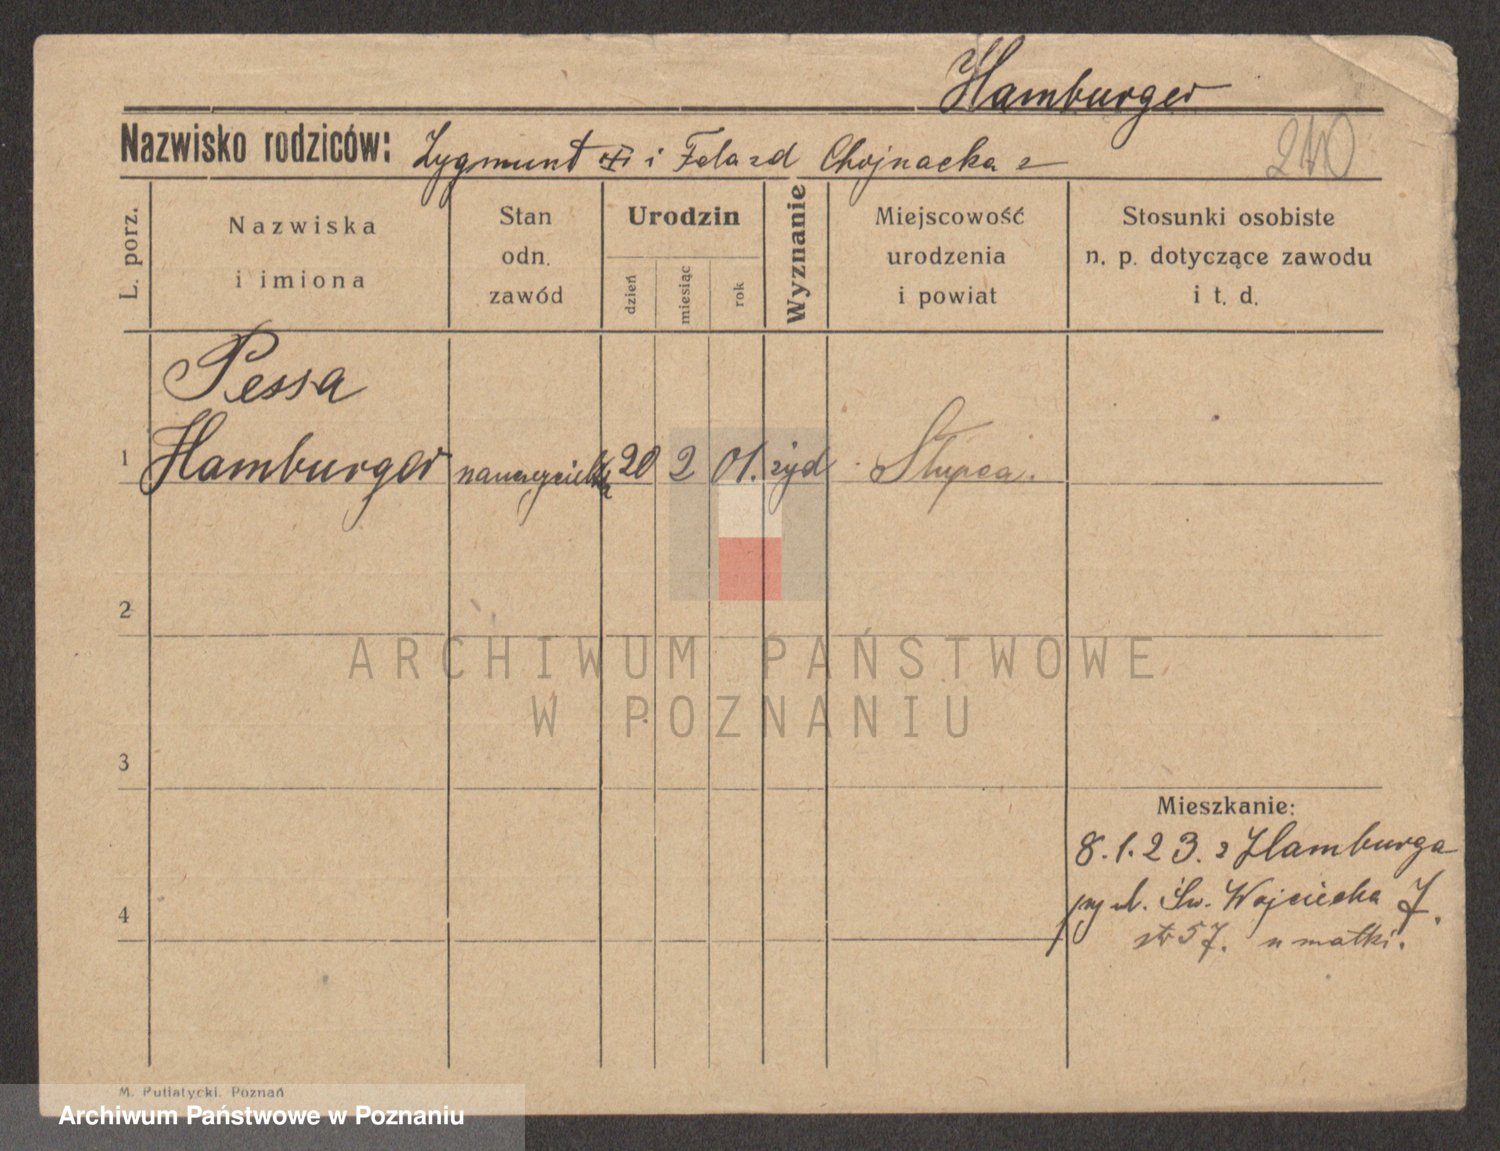 Hamburger
Nazwisko rodziców: Zygmunt i Fela zd Chojnacka
210
L. porz.
Nazwiska
i imiona
Stan
odn.
zawód
Urodzin
dzień
miesiąc
rok
Wyznanie
Miejscowość
urodzenia
i powiat
Stosunki osobiste
n. p. dotyczące zawodu
i t. d.
Pessa
1 Hamburger nauczycielka 20 2 01. żyd Słupca.
2
ARCHIWUM PAŃSTWOWE
W POZNANIU
3
Mieszkanie:
8.1.23. z Hamburga
Św. Wojciecha 7.
str 57. u matki.
4
M. Putiatycki, Poznań
Archiwum Państwowe w Poznaniu